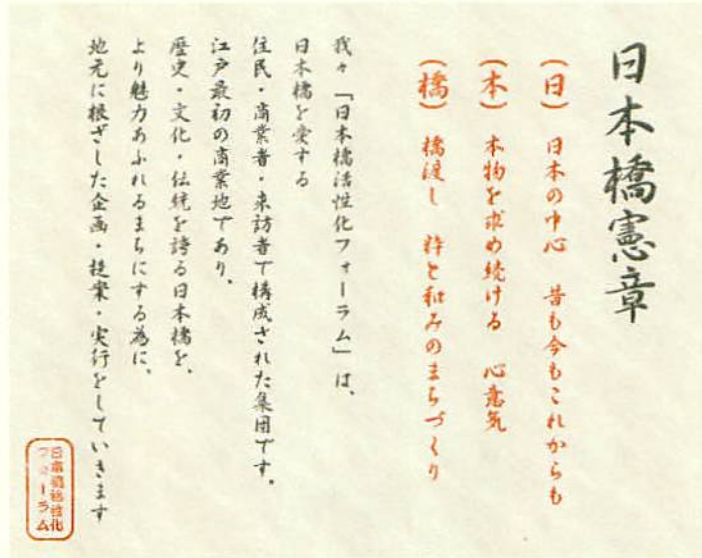 日本橋憲章
(日) 日本の中心 昔も今もこれからも
(本) 本物を求め続ける 心意気
(橋) 橋渡し 粋と和みのまちづくり
我々「日本橋活性化フォーラム」は、
日本橋を愛する
住民・商業者・来訪者で構成された集団です。
江戸最初の商業地であり、
歴史・文化・伝統を誇る日本橋を、
より魅力あふれるまちにする為に、
地元に根ざした企画・提案・実行をしていきます
日本橋活性化
フォーラム